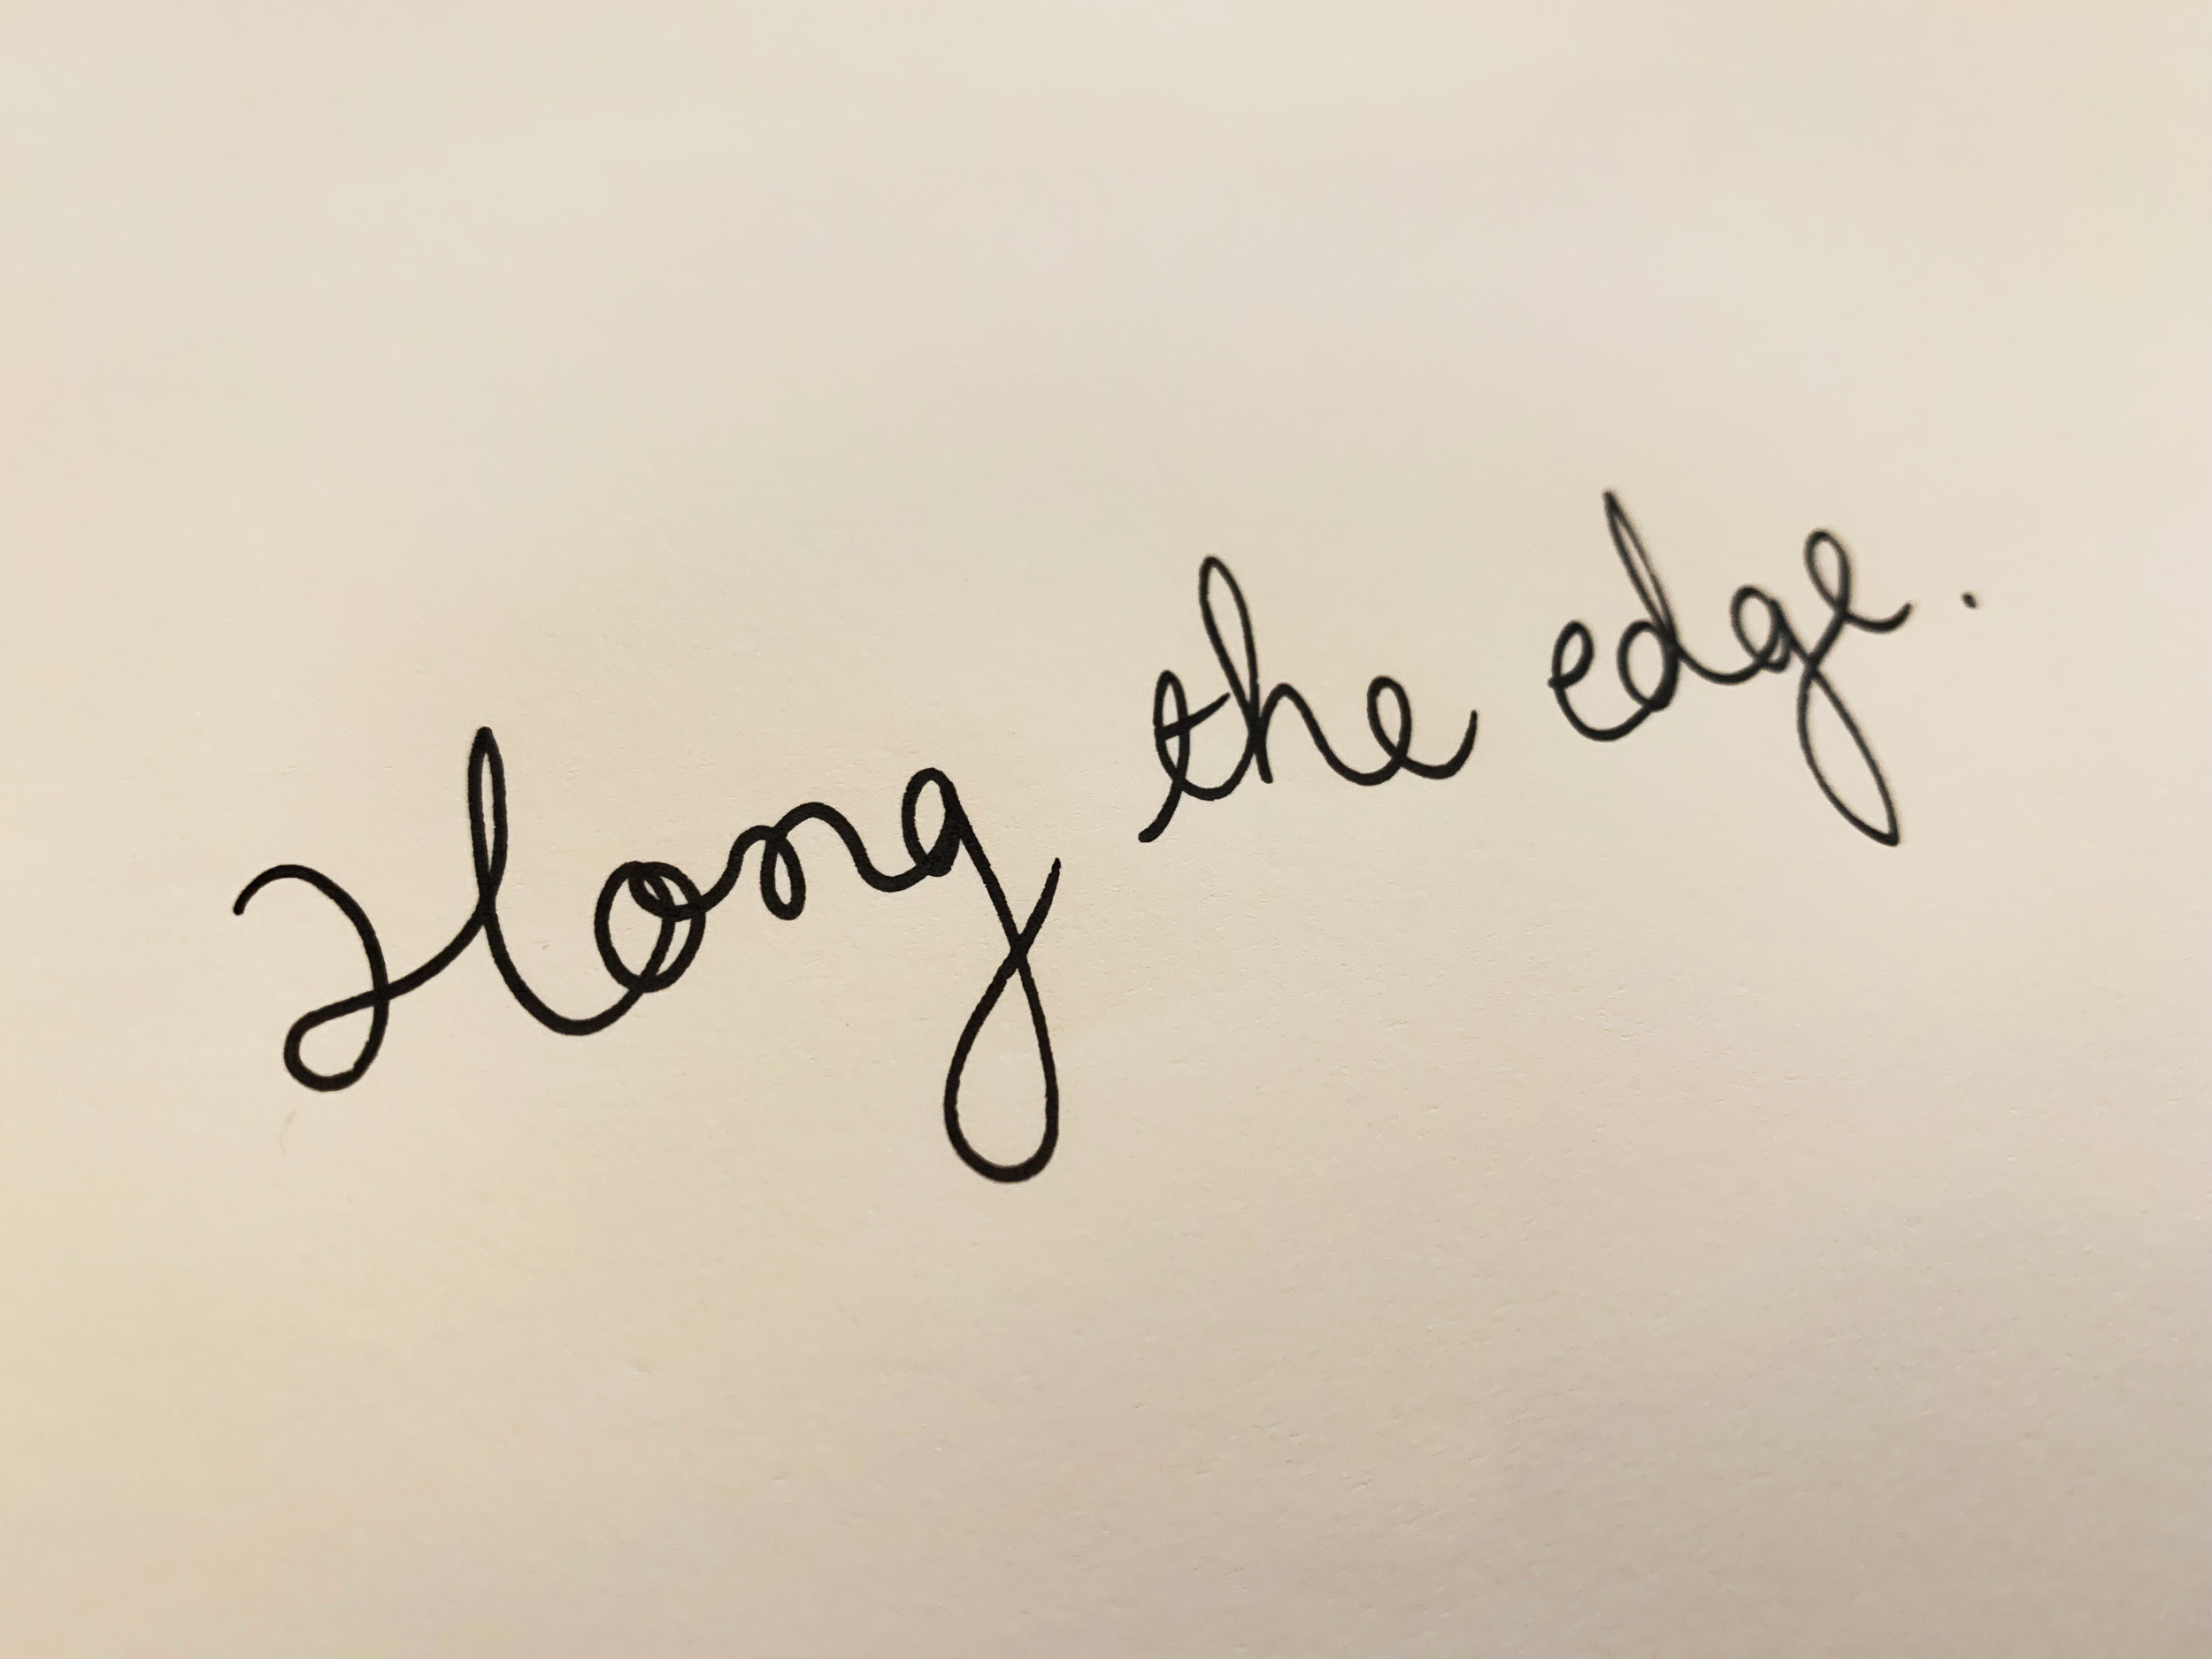 Hong the edge.